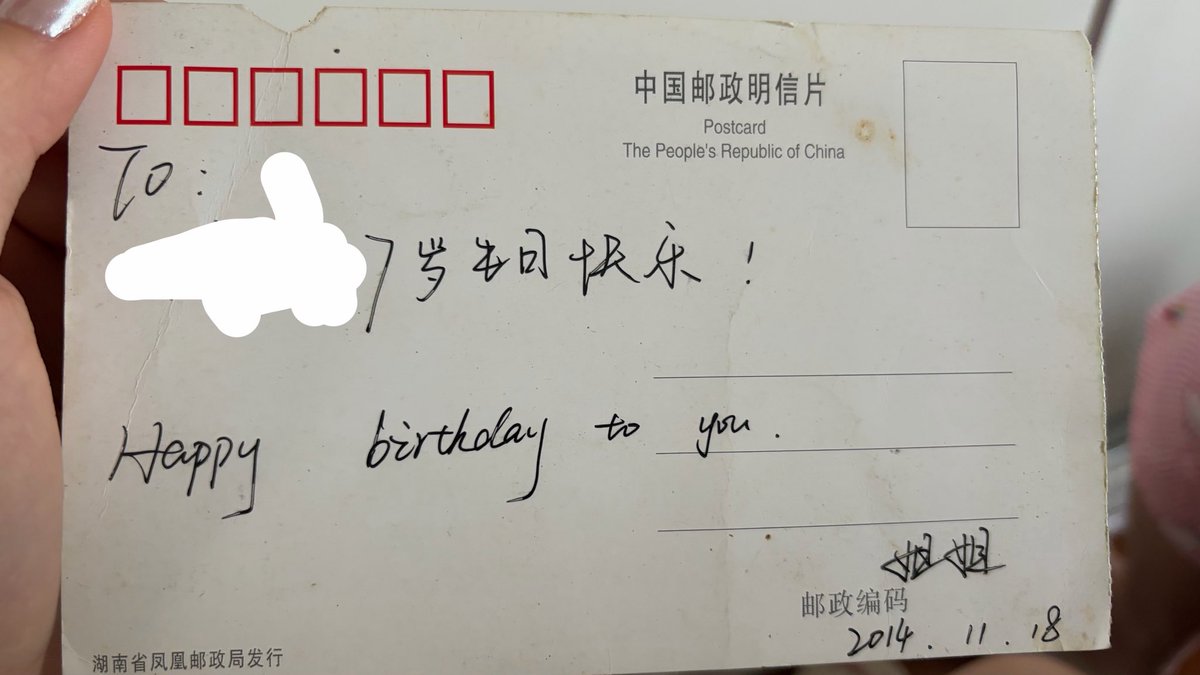 中国邮政明信片
Postcard
The People's Republic of China
To:
7岁生日快乐!
Happy birthday to you.
姐姐
邮政编码
2014.11.18
湖南省凤凰邮政局发行